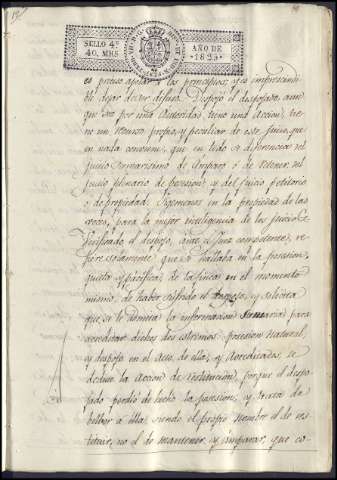 SELLO 4º
40. MRS.
AÑO DE
1825
es preciso apelar a los principios, y es imprescindible
dejar de ser difuso. Despojo el despojado, aun
que sea por una Autoridad, tiene una accion, tie-
ne un recurso propio, y peculiar de este Juicio, que
en nada conviene, que en todo se diferencia del
juicio sumarisimo de Amparo ó de retener, del
juicio plenario de posesion, y del juicio petitorio
ó de propiedad. Fijemonos en la propiedad de las
voces, para la mejor inteligencia de los Juicios.
Verificado el despojo, ante el Juez competente, re-
fiere solamente, que se hallaba en la posesion,
quieta y pacifica de la finca en el momento
mismo, de haber sufrido el despojo, y solicita
que se le admita la informacion sumaria para
acreditar dichos dos estremos posesion natural,
y despojo en el acto de ella, y acreditados se
deduce la accion de restitucion, porque el despo-
jado perdió de hecho la posesion, y trata de
bolber á ella, siendo el propio nombre el de res-
tituir, no el de mantener, y amparar, que co-